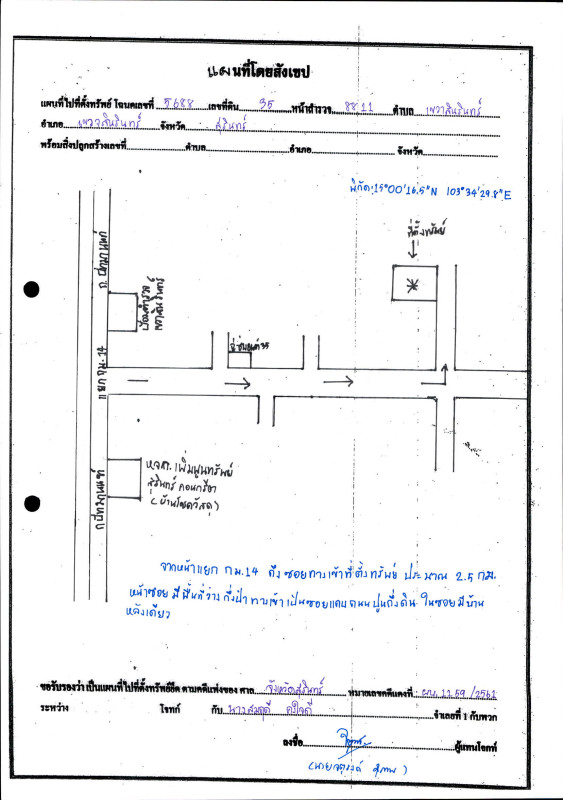 แผนที่โดยสังเขป
แผนที่ไปที่ตั้งทรัพย์ โฉนดเลขที่ 5688 เลขที่ดิน 35 หน้าสำรวจ 8811 ตำบล เขวาสินรินทร์
อำเภอ เขวาสินรินทร์ จังหวัด สุรินทร์
พร้อมสิ่งปลูกสร้างเลขที่ ตำบล อำเภอ จังหวัด
พิกัด 15°00'16.5"N 103°34'29.8"E
ที่ตั้งทรัพย์
ป้อมตำรวจ
แยก กม. 14
หจก. เพิ่มพูนทรัพย์
สุรินทร์ คอนกรีต
(บ้านโชควัสดุ)
จากหน้าแยก กม.14 ถึง ซอยทางเข้าที่ตั้งทรัพย์ ประมาณ 2.5 กม.
หน้าซอย มีพื้นที่ว่าง กึ่งป่า ทางเข้าเป็นซอยแคบ ถนนปูนกึ่งดิน ในซอยมีบ้าน
หลังเดียว
ขอรับรองว่า เป็นแผนที่ไปที่ตั้งทรัพย์ยึด ตามคดีแพ่งของ ศาล จังหวัดสุรินทร์ หมายเลขคดีแดงที่ ผบ.1159 /2561
ระหว่าง โจทก์ กับ จำเลยที่ 1 กับพวก
ลงชื่อ ผู้แทนโจทก์